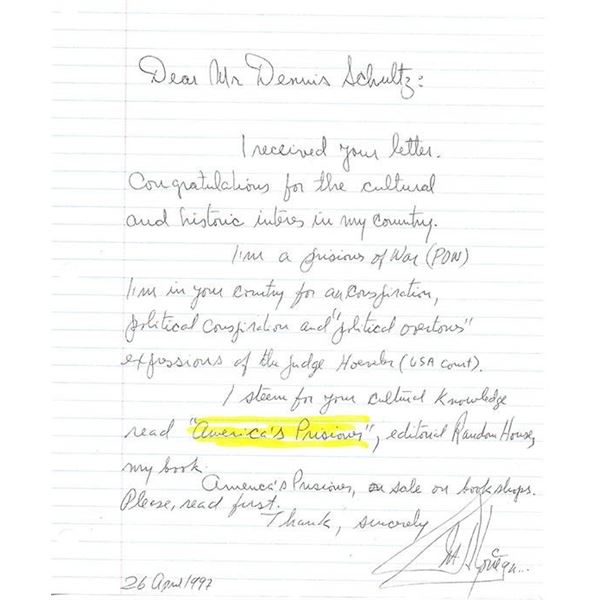 Dear Mr Dennis Schultz:
I received your letter.
Congratulations for the cultural
and historic interes in my country.
I'm a prisions of War (POW)
I'm in your country for an Conspiration,
political Conspiration and "political overtows"
expressions of the judge Hoeveler (USA court).
I steem for your cultural Knowledge
read "America's Prisioner", editorial Random House,
my book.
America's Prisioner, on sale on bookshops.
Please, read first.
Thank, sincerely
M Noriega...
26 April 1997